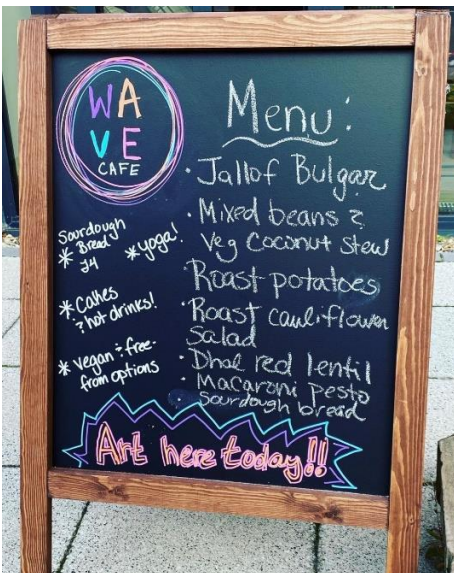 WAVE
CAFE
Menu:
· Jallof Bulgar
· Mixed beans &
Veg Coconut stew
Roast potatoes
· Roast cauliflower
Salad
· Dhal red lentil
· Macaroni pesto
sourdough bread
Sourdough
* Bread
£4
* yoga!
* Cakes
& hot drinks!
* vegan & free-
from options
Art here today!!